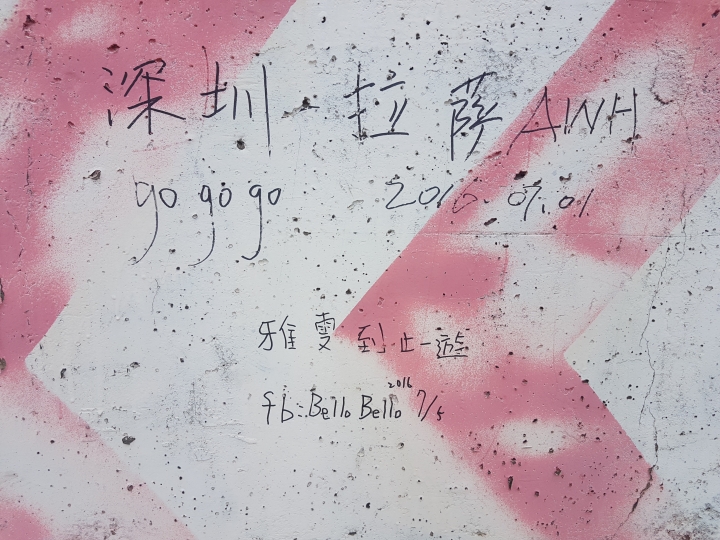 深圳·拉萨 AINH
go go go 2016.07.01
雅雯到止一遊
fb:Bello Bello 2016 7/5